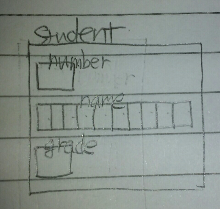 Student
number
name
grade